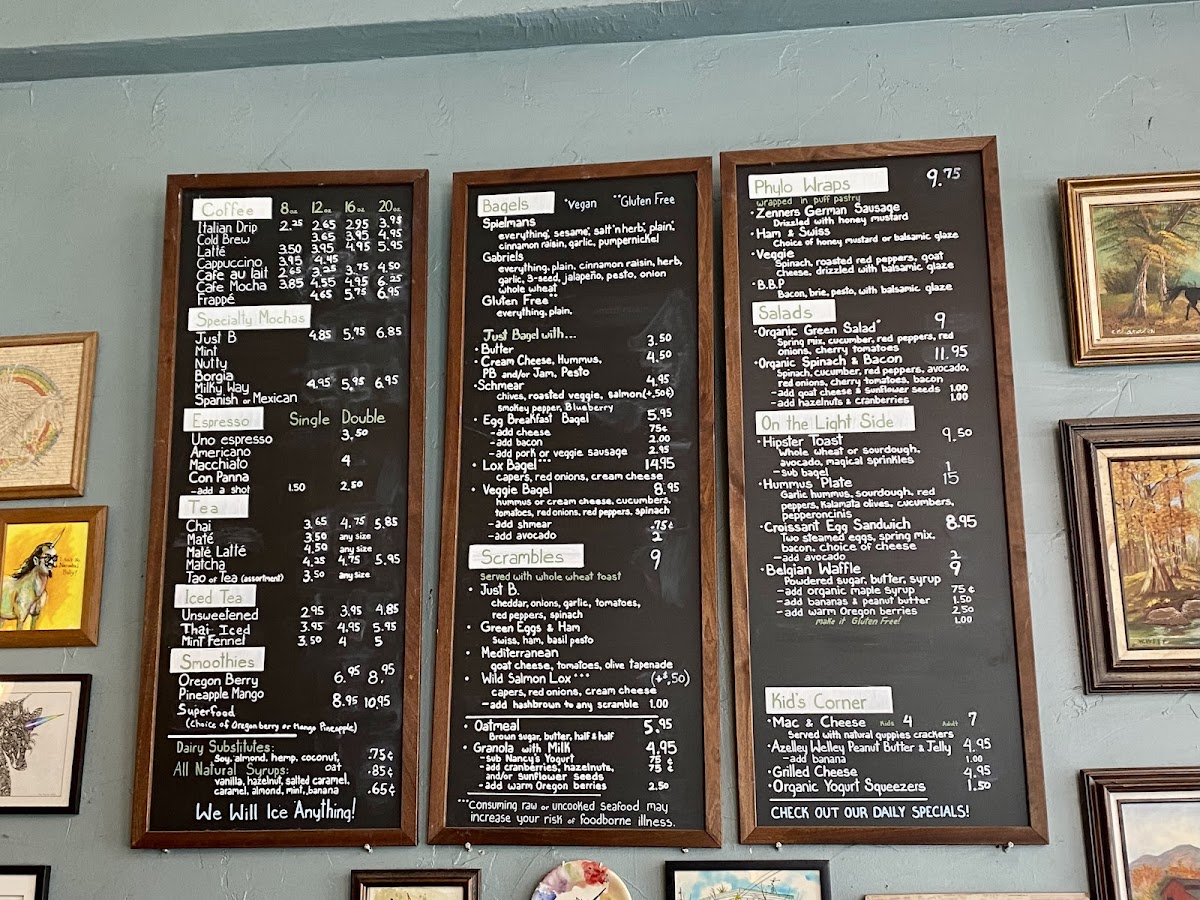 Coffee 8 oz 12 oz 16 oz 20 oz
Italian Drip 2.25 2.65 2.95 3.95
Cold Brew 3.65 3.95 4.95
Latté 3.50 3.95 4.95 5.95
Cappuccino 3.95 4.45
Cafe au lait 2.65 3.25 3.75 4.50
Cafe Mocha 3.85 4.55 4.95 6.25
Frappé 4.65 5.75 6.95
Specialty Mochas
Just B 4.85 5.75 6.85
Mint
Nutty
Borgia
Milky Way 4.95 5.95 6.95
Spanish or Mexican
Espresso Single Double
Uno espresso 3.50
Americano
Macchiato 4
Con Panna
-add a shot 1.50 2.50
Tea
Chai 3.65 4.75 5.85
Maté 3.50 any size
Maté Latté 4.50 any size
Matcha 4.25 4.75 5.95
Tao of Tea (assortment) 3.50 any size
Iced Tea
Unsweetened 2.95 3.95 4.85
Thai Iced 3.95 4.95 5.95
Mint Fennel 3.50 4 5
Smoothies
Oregon Berry 6.95 8.95
Pineapple Mango
Superfood 8.95 10.95
(Choice of Oregon berry or Mango Pineapple)
Dairy Substitutes:
Soy, almond, hemp, coconut, .75¢
oat .85¢
All Natural Syrups:
vanilla, hazelnut, salted caramel,
caramel, almond, mint, banana .65¢
We Will Ice Anything!
Bagels *Vegan **Gluten Free
Spielmans
everything, sesame, salt'n herb, plain,
cinnamon raisin, garlic, pumpernickel
Gabriels
everything, plain, cinnamon raisin, herb,
garlic, 3-seed, jalapeño, pesto, onion
whole wheat
Gluten Free**
everything, plain.
Just Bagel with...
• Butter 3.50
• Cream Cheese, Hummus, 4.50
PB and/or Jam, Pesto
• Schmear 4.95
chives, roasted veggie, salmon(+.50¢)
smokey pepper, Blueberry
• Egg Breakfast Bagel 5.95
-add cheese 75¢
-add bacon 2.00
-add pork or veggie sausage 2.95
• Lox Bagel*** 14.95
capers, red onions, cream cheese
• Veggie Bagel 8.95
hummus or cream cheese, cucumbers,
tomatoes, red onions, red peppers, spinach
-add shmear .75¢
-add avocado 2
Scrambles 9
Served with whole wheat toast
• Just B.
cheddar, onions, garlic, tomatoes,
red peppers, spinach
• Green Eggs & Ham
Swiss, ham, basil pesto
• Mediterranean
goat cheese, tomatoes, olive tapenade
• Wild Salmon Lox*** (+$.50)
capers, red onions, cream cheese
-add hashbrown to any scramble 1.00
• Oatmeal 5.95
Brown sugar, butter, half & half
• Granola with Milk 4.95
-sub Nancy's Yogurt 75¢
-add cranberries, hazelnuts, 75¢
and/or sunflower seeds
-add warm Oregon berries 2.50
***Consuming raw or uncooked Seafood may
increase your risk of foodborne illness.
Phylo Wraps 9.75
wrapped in puff pastry
• Zenners German Sausage
Drizzled with honey mustard
• Ham & Swiss
Choice of honey mustard or balsamic glaze
• Veggie
Spinach, roasted red peppers, goat
cheese, drizzled with balsamic glaze
• B.B.P
Bacon, brie, pesto, with balsamic glaze
Salads
• Organic Green Salad* 9
Spring mix, cucumber, red peppers, red
onions, cherry tomatoes
• Organic Spinach & Bacon 11.95
Spinach, cucumber, red peppers, avocado,
red onions, cherry tomatoes, bacon
-add goat cheese & sunflower seeds 1.00
-add hazelnuts & cranberries 1.00
On the Light Side
• Hipster Toast 9.50
Whole wheat or sourdough,
avocado, magical sprinkles
-sub bagel 1
• Hummus Plate 15
Garlic hummus, sourdough, red
peppers, Kalamata olives, cucumbers,
pepperoncinis
• Croissant Egg Sandwich 8.95
Two steamed eggs, spring mix,
bacon, choice of cheese
-add avocado 2
• Belgian Waffle 9
Powdered sugar, butter, syrup
-add organic maple syrup 75¢
-add bananas & peanut butter 1.50
-add warm Oregon berries 2.50
make it Gluten Free! 1.00
Kid's Corner
• Mac & Cheese Kids 4 Adult 7
Served with natural guppies crackers
• Azelley Welley Peanut Butter & Jelly 4.95
-add banana 1.00
• Grilled Cheese 4.95
• Organic Yogurt Squeezers 1.50
CHECK OUT OUR DAILY SPECIALS!